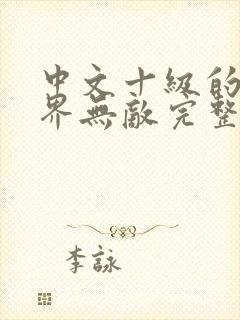 中文十級的
界無敵完整
李詠